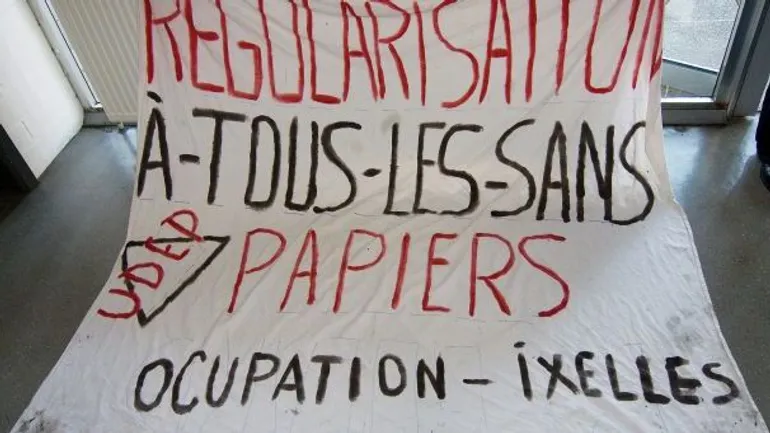 REGULARISATION
À-TOUS-LES-SANS
UDEP
PAPIERS
OCUPATION - iXELLES